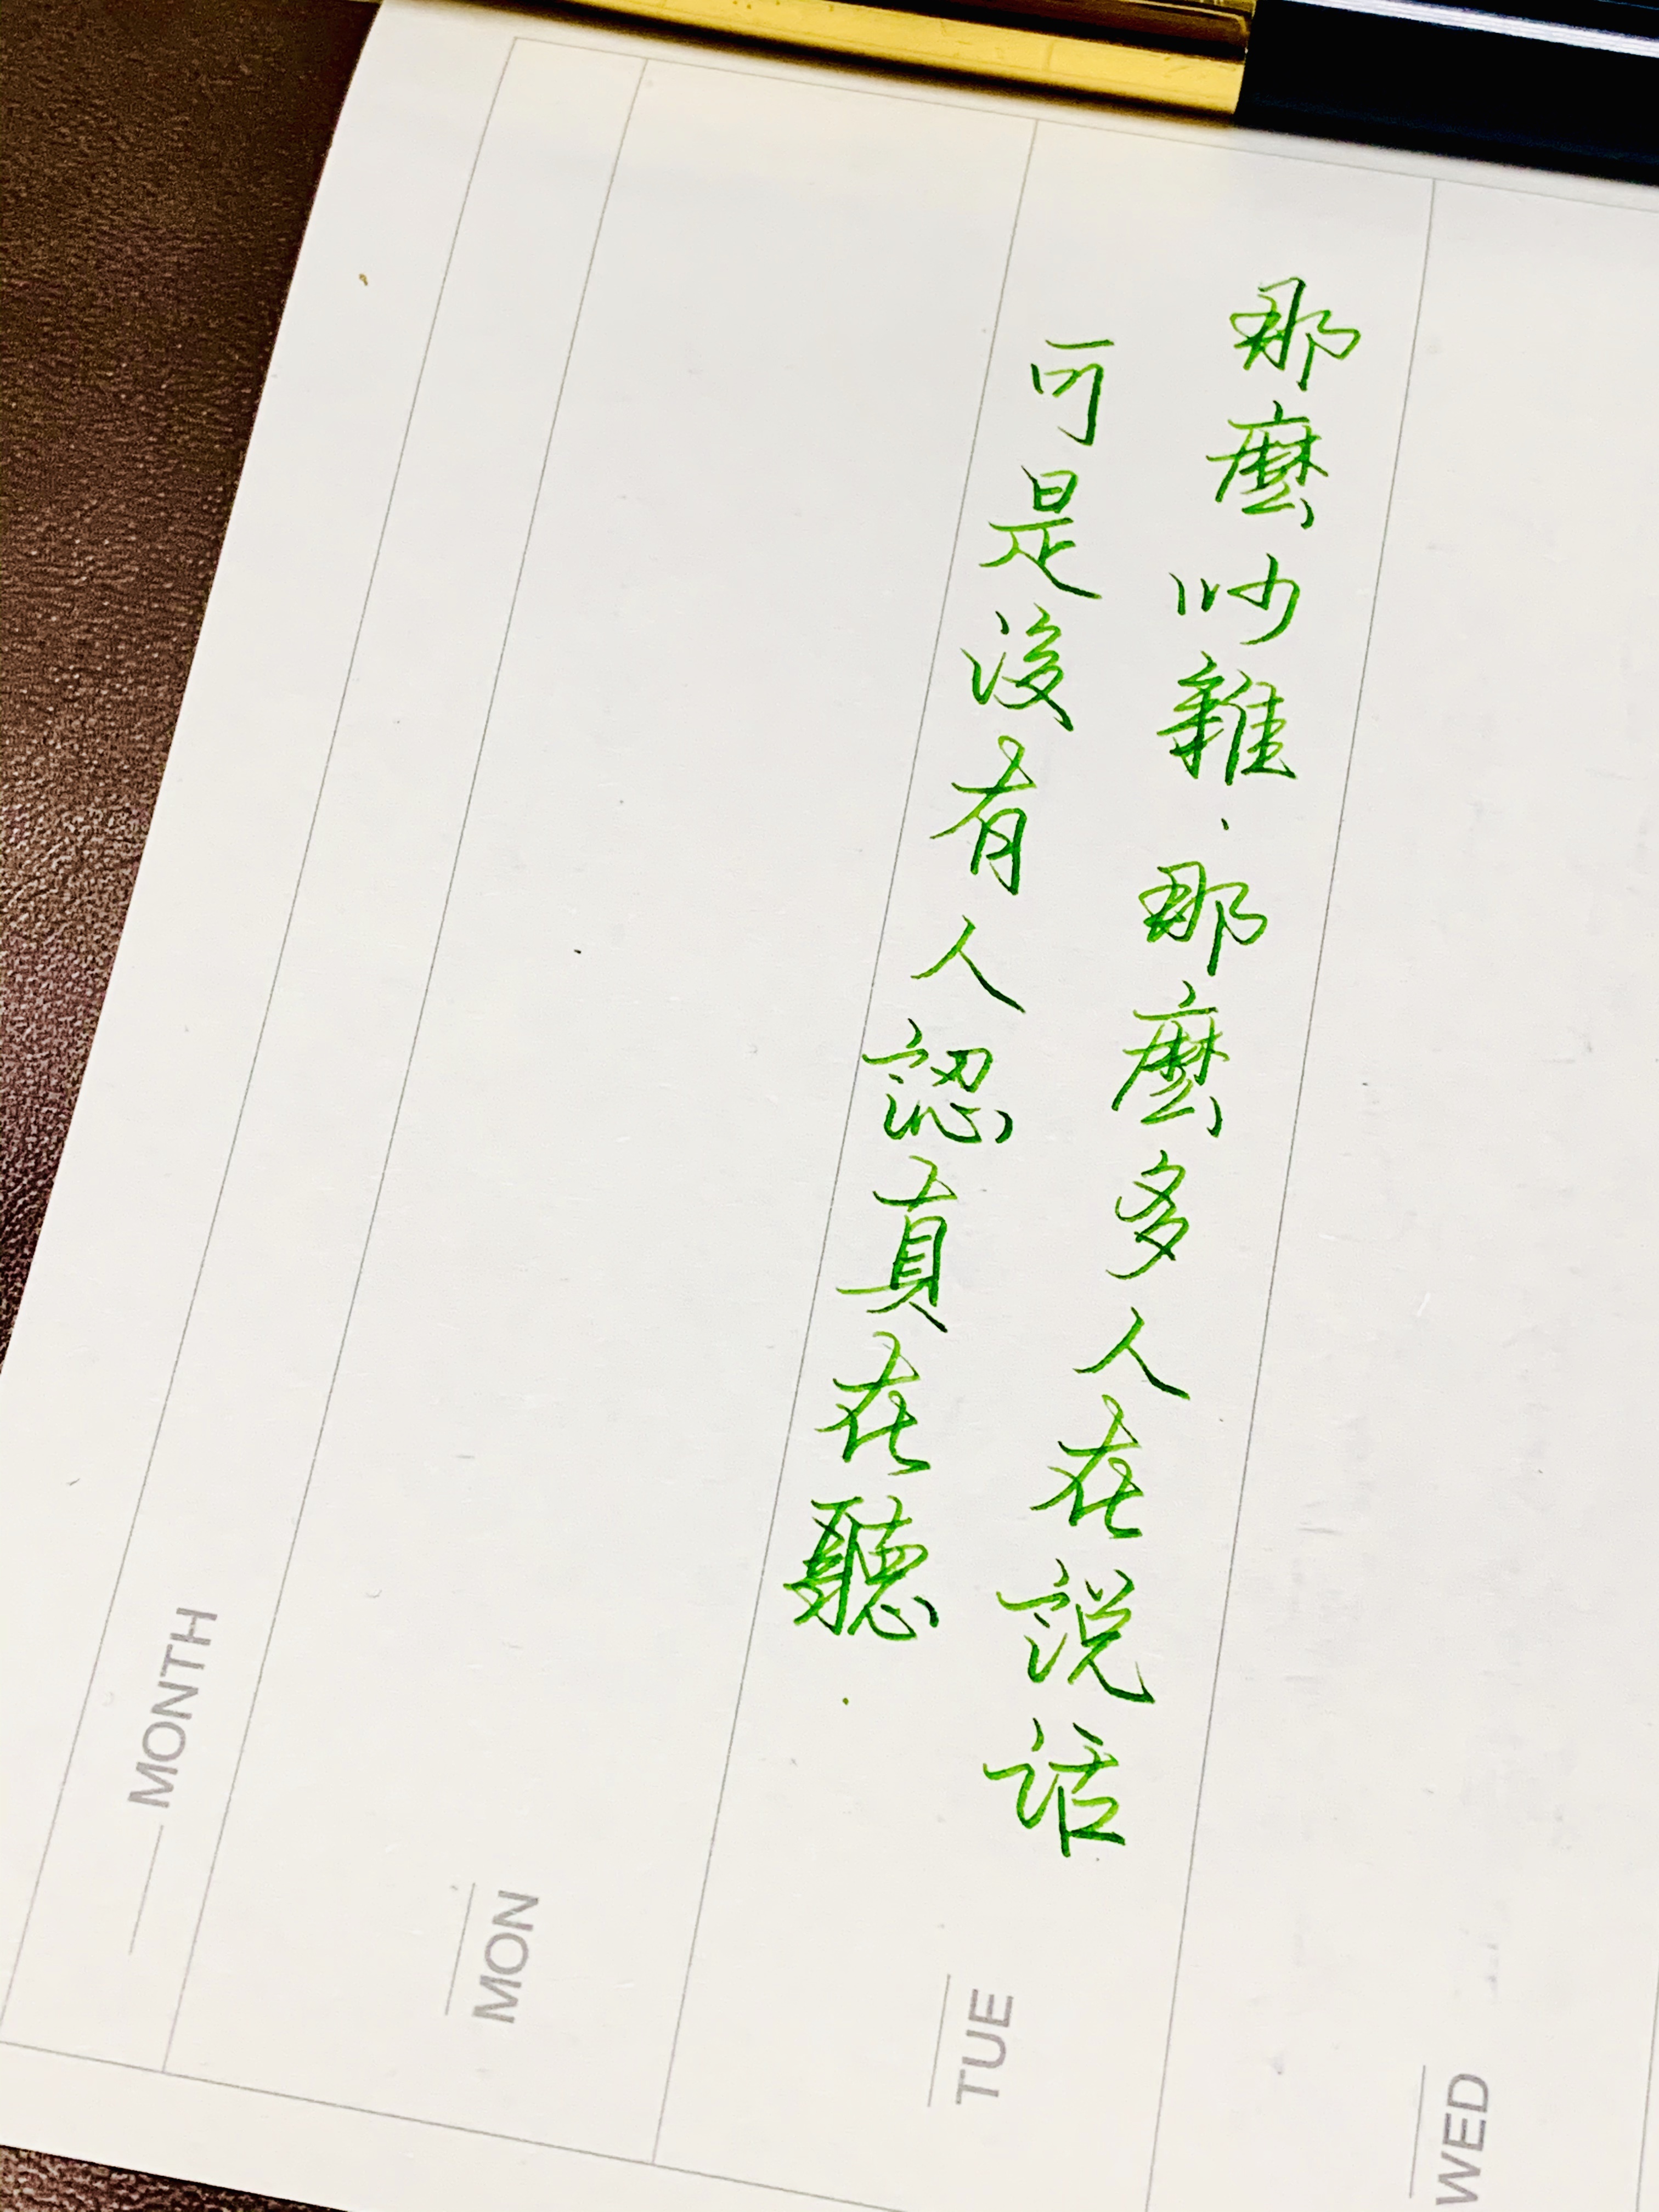 那麼吵雜，那麼多人在說話
可是沒有人認真在聽.
MONTH
MON
TUE
WED